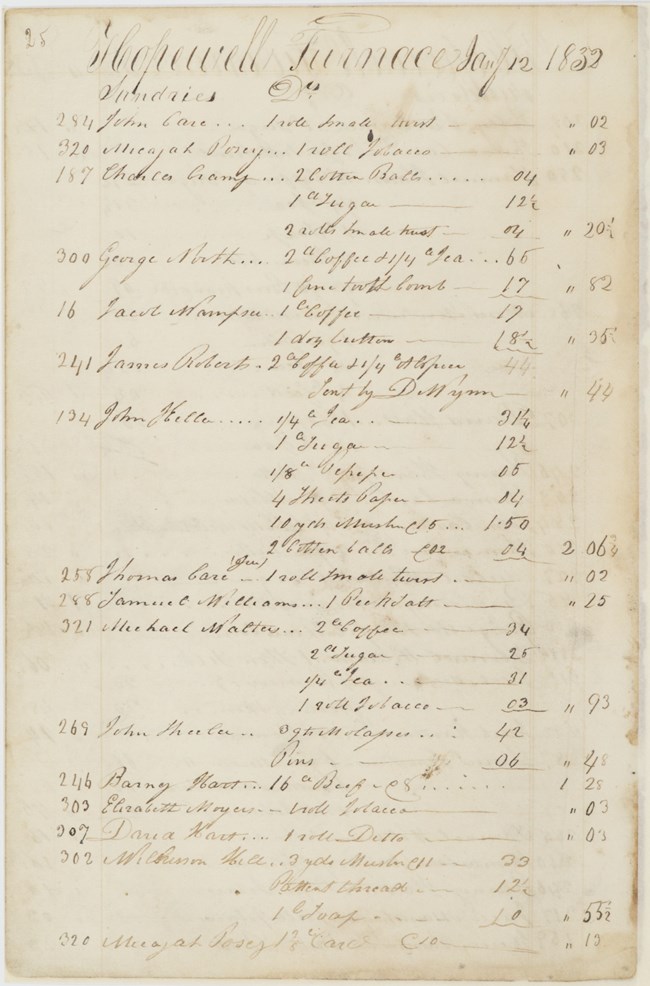 25
Hopewell Furnace Jany 12 1832
Sundries Dr
284 John Care ... 1 roll small twist " 02
320 Micajah Posey ... 1 roll Tobacco " 03
187 Charles Cramp ... 2 Cotten Balls ..... 04
1 lb Sugar 12½
2 rolls small twist 04 " 20½
300 George North ... 2 lb Coffee & 1/4 lb Tea ... 65
1 fine tooth Comb 17 " 82
16 Jacob 1 lb Coffee 17
1 doz button 18½ " 35½
241 James Roberts 2 lb Coffee & 1/4 lb 44
Sent by D Wynn " 44
134 John ..... 1/4 lb Tea .. 31¼
1 lb Sugar 12½
1/8 lb 05
4 Sheets Paper 04
10 yds Muslin @ 15 ... 1.50
2 Cotten balls @ 02 04 2 06¾
258 Thomas Care 1 roll small twist " 02
288 Samuel Williams ... 1 Peck Salt " 25
321 Michael Walters ... 2 lb Coffee 34
2 lb Sugar 25
1/4 lb Tea .. 31
1 roll Tobacco 03 " 93
269 John Sheeler .. 3 qts Molasses .. 42
Pins 06 " 48
246 Barney Hart ... 16 lb Beef @ 8 1 28
303 Elizabeth Moyers 1 roll Tobacco " 03
307 David Hart .... 1 roll Ditto " 03
302 Wilkinson Hill .. 3 yds Muslin @ 11 33
Pattent thread 12½
1 lb Soap 10 " 55½
320 Micajah Posey @ 10 " 13